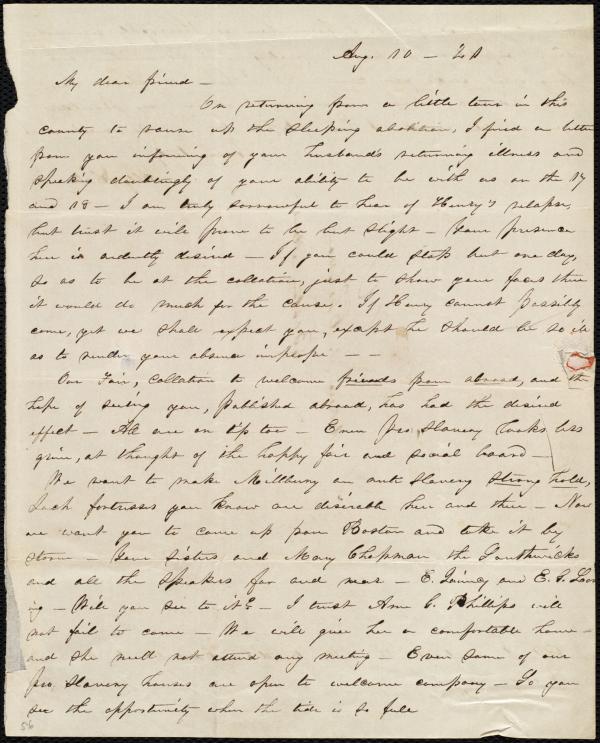 Aug. 10 – 41
My dear friend –
On returning from a little tour in this
county to rouse up the sleeping abolition, I find a letter
from you informing of your husband's returning illness and
speaking doubtingly of your ability to be with us on the 17
and 18 – I am truly sorrowful to hear of Henry's relapse,
but trust it will prove to be but slight – Your presence
here is ardently desired – If you could stop but one day,
so as to be at the collation, just to show your faces there
it would do much for the cause. If Henry cannot possibly
come, yet we shall expect you, except he should be so ill
as to render your absence improper – –
Our Fair, collation to welcome friends from abroad, and the
hope of seeing you, published abroad, has had the desired
effect – All are on tip toe – Even Pro Slavery looks less
grim, at thought of the happy fair and social board –
We want to make Millbury an anti slavery strong hold,
Such fortresses you know are desirable here and there – Now
we want you to come up from Boston and take it by
storm – Your sisters and Mary Chapman the Southwicks
and all the speakers far and near – E. Quincy and E. G. Lor
ing – Will you see to it? – I trust Ann G. Phillips will
not fail to come – We will give her a comfortable home –
and she need not attend any meeting – Even some of our
pro slavery houses are open to welcome company – Do you
see the opportunity when the tide is so full
56